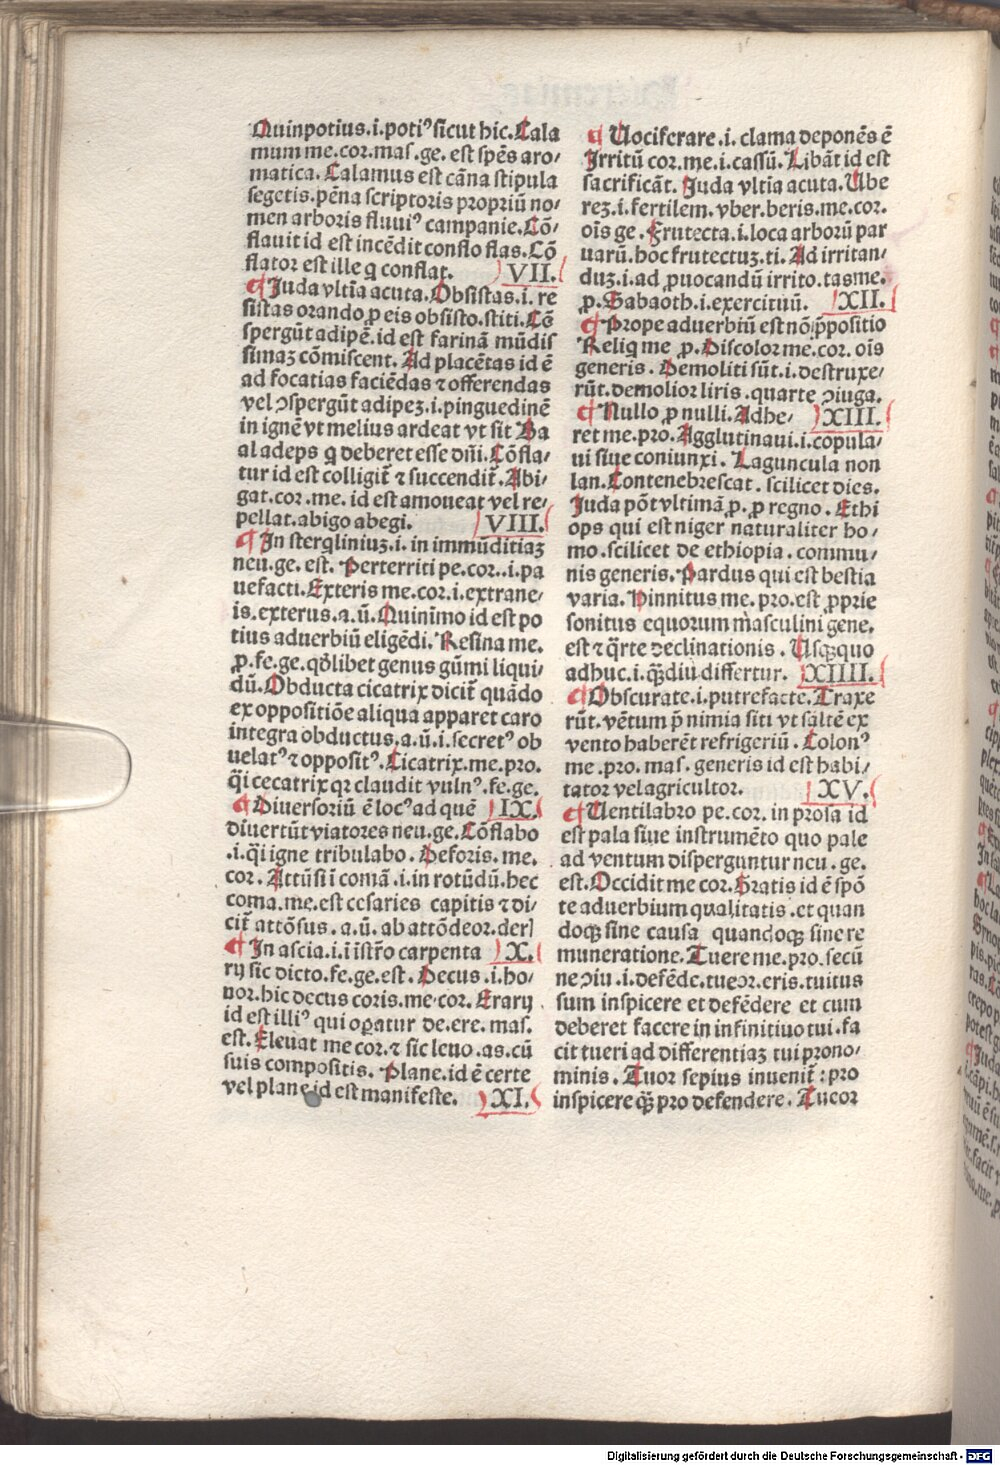 Quinpotius.i.potiꝰ sicut hic.Cala
mum me.cor.mas.ge. est spēs aro/
matica. Calamus est cāna stipula
segetis. pēna scriptoris propriū no/
men arboris fluuiꝰ campanie. Cō/
flauit id est incēdit conflo flas. Cō
flator est ille q conflat. VII.
¶ Juda vltīa acuta. Obsistas.i. re
sistas orando ꝓ eis obsisto.stiti. Cō
spergūt adipē.id est farinā mūdis
simaꝫ cōmiscent. Ad placētas id ē
ad focatias faciēdas ⁊ offerendas
vel ↄspergūt adipeꝫ.i.pinguedinē
in ignē vt melius ardeat vt sit Ba
al adeps q deberet esse dn̄i. Cōfla/
tur id est colligit̄ ⁊ succendit̄. Abi/
gat.cor.me. id est amoueat vel re/
pellat.abigo abegi. VIII.
¶ In sterqliniuꝫ.i. in immūditiaꝫ
neu.ge. est. Perterriti pe.cor..i.pa
uefacti. Exteris me.cor.i.extrane/
is. exterus.a.ū. Quinimo id est po
tius aduerbiū eligēdi. Resina me.
ꝓ.fe.ge. qōlibet genus gūmi liqui/
dū. Obducta cicatrix dicit̄ quādo
ex oppositiōe aliqua apparet caro
integra obductus.a.ū.i.secretꝰ ob
uelatꝰ ⁊ oppositꝰ. Cicatrix.me.pro.
q̄i cecatrix qꝛ claudit vulnꝰ.fe.ge.
¶ Diuersoriū ē locꝰ ad quē IX.
diuertūt viatores neu.ge. Cōflabo
.i.q̄i igne tribulabo. Deforis. me.
cor. Attūsi ī comā.i.in rotūdū.hec
coma.me.est cesaries capitis ⁊ di/
cit̄ attōsus. a.ū. ab attōdeor.deri
¶ In ascia.i.ī īstr̄o carpenta X.
rij sic dicto.fe.ge.est. Decus.i.ho/
nor.hic decus coris.me.cor. Erarij
id est illiꝰ qui oꝑatur de.ere. mas.
est. Eleuat me cor.⁊ sic leuo.as.cū
suis compositis. Plane.id ē certe
vel plane id est manifeste. XI.
¶ Uociferare.i. clama deponēs ē
Irritū cor.me.i.cassū. Libāt id est
sacrificāt. Juda vltīa acuta. Ube
reꝫ.i.fertilem. vber.beris.me.cor.
oīs ge. Frutecta.i.loca arborū par
uarū. hoc frutectuꝫ.ti. Ad irritan/
duꝫ.i.ad ꝓuocandū irrito.tas me.
ꝓ. Sabaoth.i.exercituū. XII.
¶ Prope aduerbiū est nō p̄positio
Reliq me ꝓ. Discolor me.cor. oīs
generis. Demoliti sūt.i.destruxe/
rūt.demolior liris.quarte ↄiuga.
¶ Nullo ꝓ nulli. Adhe/ XIII.
ret me.pro. Agglutinaui.i.copula/
ui siue coniunxi. Laguncula non
lan. Contenebrescat. scilicet dies.
Juda pōt vltimā ꝓ. ꝓ regno. Ethi
ops qui est niger naturaliter ho/
mo.scilicet de ethiopia. commu/
nis generis. Pardus qui est bestia
varia. Hinnitus me. pro.est ꝓprie
sonitus equorum masculini gene.
est ⁊ q̄rte declinationis. Usqꝫquo
adhuc.i.qꝫdiu differtur. XIIII.
¶ Obscurate.i.putrefacte. Traxe
rūt. vētum p̄ nimia siti vt saltē ex
vento haberēt refrigeriū. Colonꝰ
me.pro. mas. generis id est habi/
tator vel agricultor. XV.
¶ Uentilabro pe.cor. in prosa id
est pala siue instrumēto quo pale
ad ventum disperguntur neu. ge.
est. Occidit me cor. Gratis id ē spō
te aduerbium qualitatis.et quan
doqꝫ sine causa quandoqꝫ sine re
muneratione. Tuere me.pro.secū
ne ↄiu.i.defēde.tueor.eris.tuitus
sum inspicere et defēdere et cum
deberet facere in infinitiuo tui.fa
cit tueri ad differentiaꝫ tui prono/
minis. Tuor sepius inuenit̄ : pro
inspicere qꝫ pro defendere. Tueor
Digitalisierung gefördert durch die Deutsche Forschungsgemeinschaft - DFG